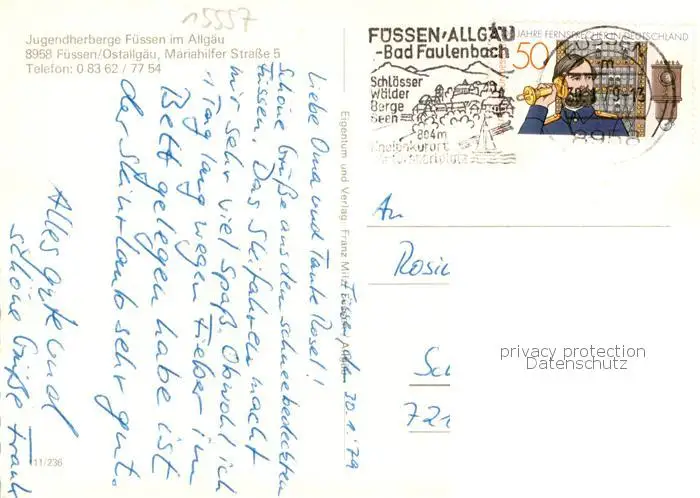 15557
Jugendherberge Füssen im Allgäu
8958 Füssen/Ostallgäu, Mariahilfer Straße 5
Telefon: 0 83 62 / 77 54
FÜSSEN/ALLGÄU
-Bad Faulenbach
Schlösser
Wälder
Berge
Seen
804m
Kneippkurort
JAHRE FERNSPRECHER IN DEUTSCHLAND
50
8958
Füssen, den 30.1.79
Liebe Oma und Tante Rosel!
Schöne Grüße aus den schneebedeckten
Füssen. Das Skifahren macht
mir sehr viel Spaß. Obwohl ich
1 Tag lang wegen Fieber im
Bett gelegen habe ist
der Skiurlaub sehr gut.
Alles gute und
schöne Grüße Frank
Eigentum und Verlag: Franz Milz
11/236
An
Rosi
Sc
721
privacy protection
Datenschutz